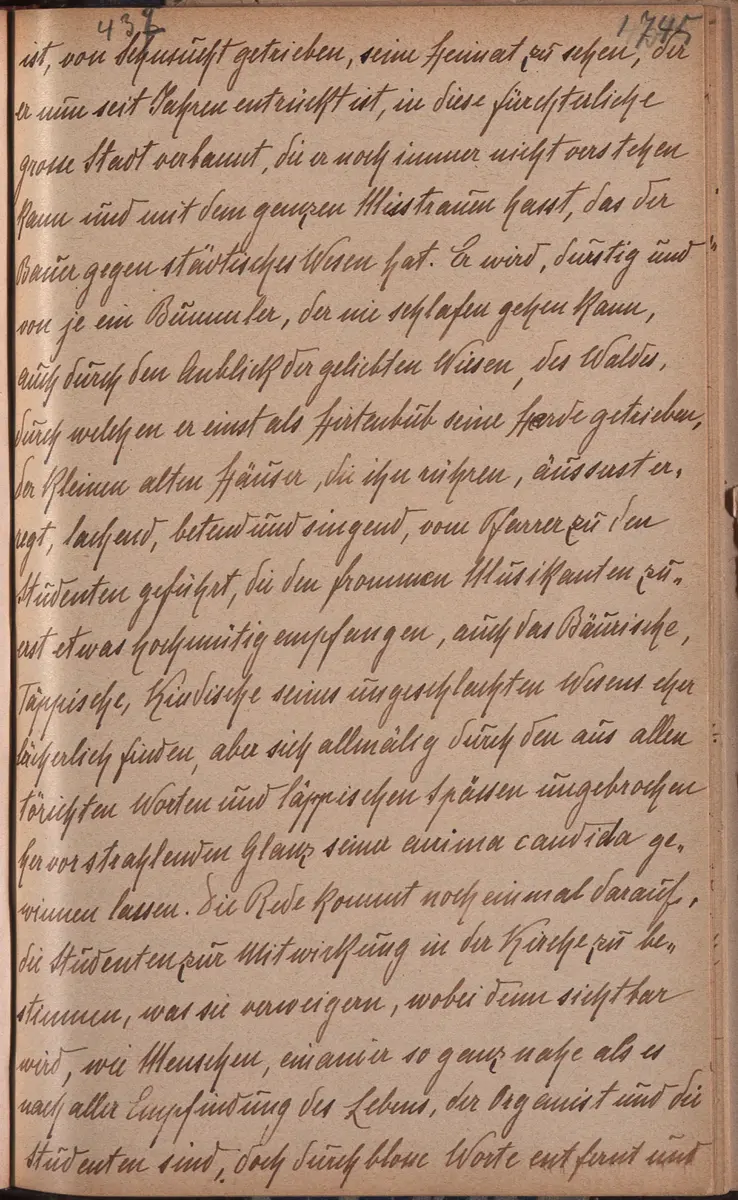 437 1745
ist, von Sehnsucht getrieben, seine Heimat zu sehen, der
er nun seit Jahren entrückt ist, in diese fürchterliche
grosse Stadt verbannt, die er noch immer nicht verstehen
kann und mit dem ganzen Misstrauen hasst, das der
Bauer gegen städtisches Wesen hat. Er wird, durstig und
von je ein Bummler, der nie schlafen gehen kann,
auch durch den Anblick der geliebten Wiesen, des Waldes,
durch welchen er einst als Hirtenbub seine Herde getrieben,
der kleinen alten Häuser, die ihn rühren, äusserst er-
regt, lachend, betend und singend, vom Pfarrer zu den
Studenten geführt, die den frommen Musikanten zu-
erst etwas hochmütig empfangen, auch das Bäurische,
Täppische, Kindische seines ungeschlachten Wesens eher
lächerlich finden, aber sich allmälig durch den aus allen
törichten Worten und läppischen Spässen ungebrochen
hervorstrahlenden Glanz seiner anima candida ge-
winnen lassen. Die Rede kommt noch einmal darauf,
die Studenten zur Mitwirkung in der Kirche zu be-
stimmen, was sie verweigern, wobei denn sichtbar
wird, wie Menschen, einander so ganz nahe als es
nach aller Empfindung des Lebens, der Organist und die
Studenten sind, doch durch blosse Worte entfernt und